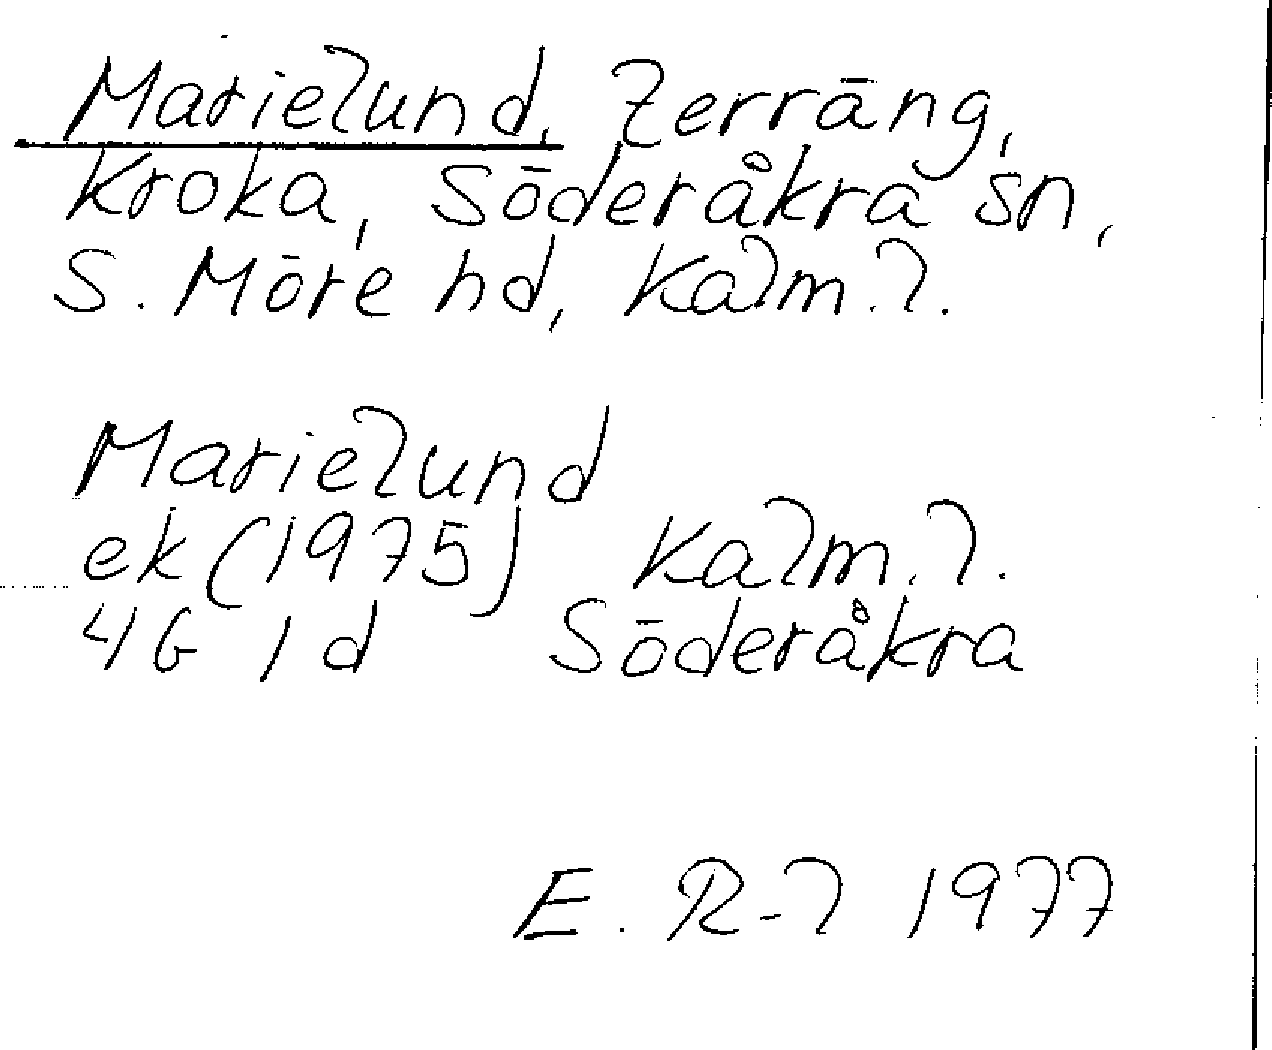 Marielund, terräng,
Kroka, Söderåkra sn,
S. Möre hd, Kalm. l.
Marielund
ek (1975) Kalm. l.
4G 1d Söderåkra
E. R-l 1977